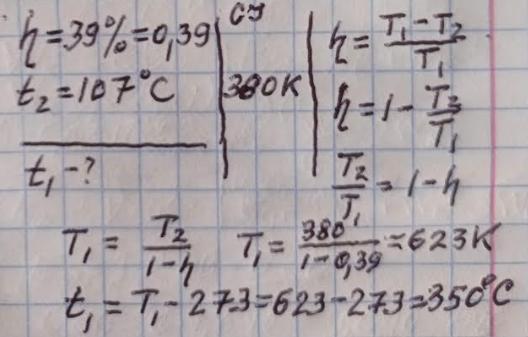 η = 39% = 0,39
t₂ = 107°C
t₁ - ?
СИ
380K
η = (T₁ - T₂)/T₁
η = 1 - T₂/T₁
T₂/T₁ = 1 - η
T₁ = T₂/(1 - η) T₁ = 380/(1 - 0,39) = 623K
t₁ = T₁ - 273 = 623 - 273 = 350°C